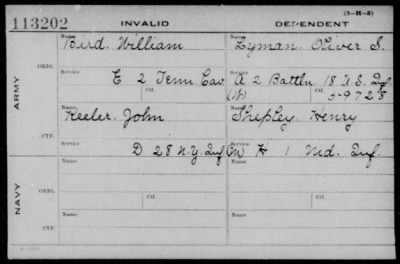 (3-H-5)
113202 INVALID DEPENDENT
Name Name
Bird. William Lyman. Oliver S.
ORIG.
Service Ctf. Service Ctf.
E 2 Tenn Cav A 2 Battln 18 U.S. Inf
(W) 59728
ARMY
Name Name
Keeler. John Shepley. Henry
CTF.
Service Ctf. Service Ctf.
D 28 N.Y. Inf (M) H 1 Md. Inf.
Name Name
ORIG.
Ctf. Ctf.
NAVY
Name Name
CTF.